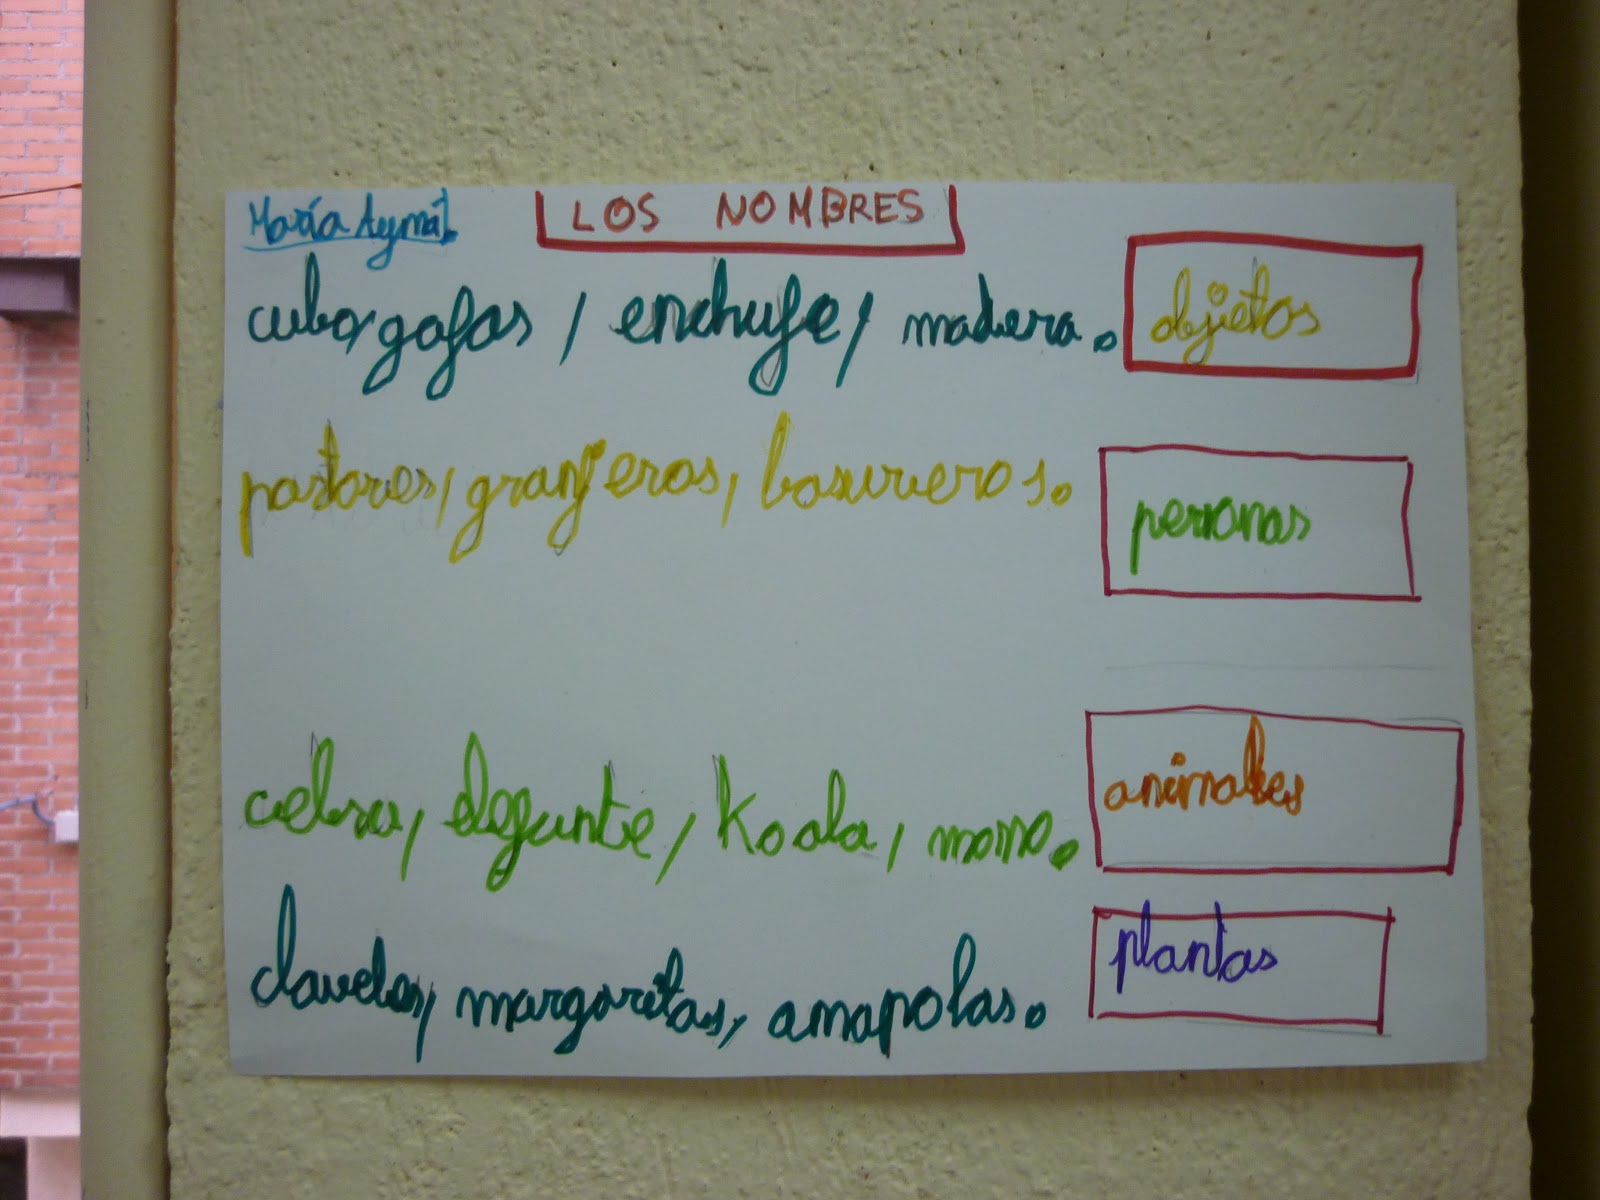 María Aymát.
LOS NOMBRES
cubo, gafas, enchufe, madera. objetos
pastores, granjeros, basureros. personas
cebra, elegante, Koala, mono. animales
claveles, margaritas, amapolas. plantas